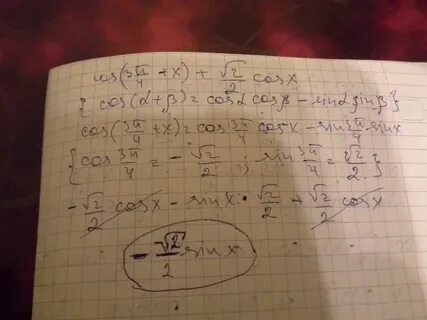 cos(3π/4 + x) + √2/2 cosx
{ cos(α+β) = cosα cosβ - sinα sinβ }
cos(3π/4 + x) = cos 3π/4 cosx - sin 3π/4 sinx
{ cos 3π/4 = - √2/2 ; sin 3π/4 = √2/2 }
- √2/2 cosx - sinx • √2/2 + √2/2 cosx
- √2/2 sinx